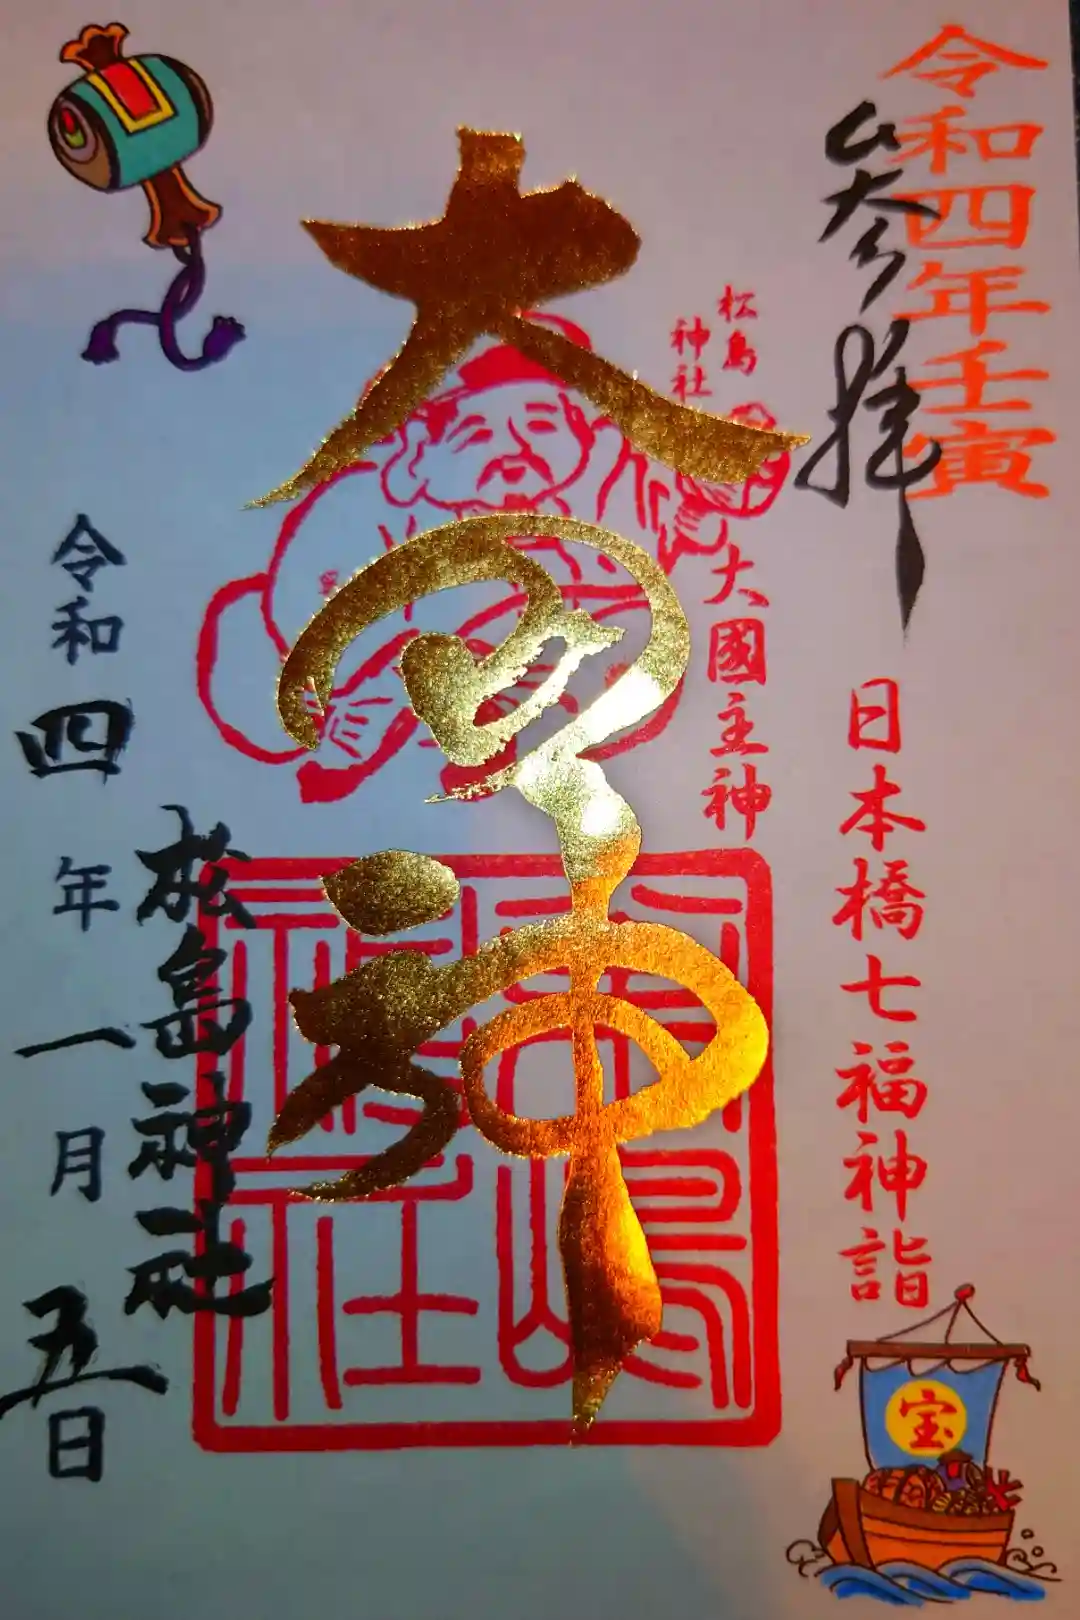 令和四年壬寅
参拝
日本橋七福神詣
宝
松島
神社
大國主神
大神
松嶋
神社
松島神社
令和四年一月五日